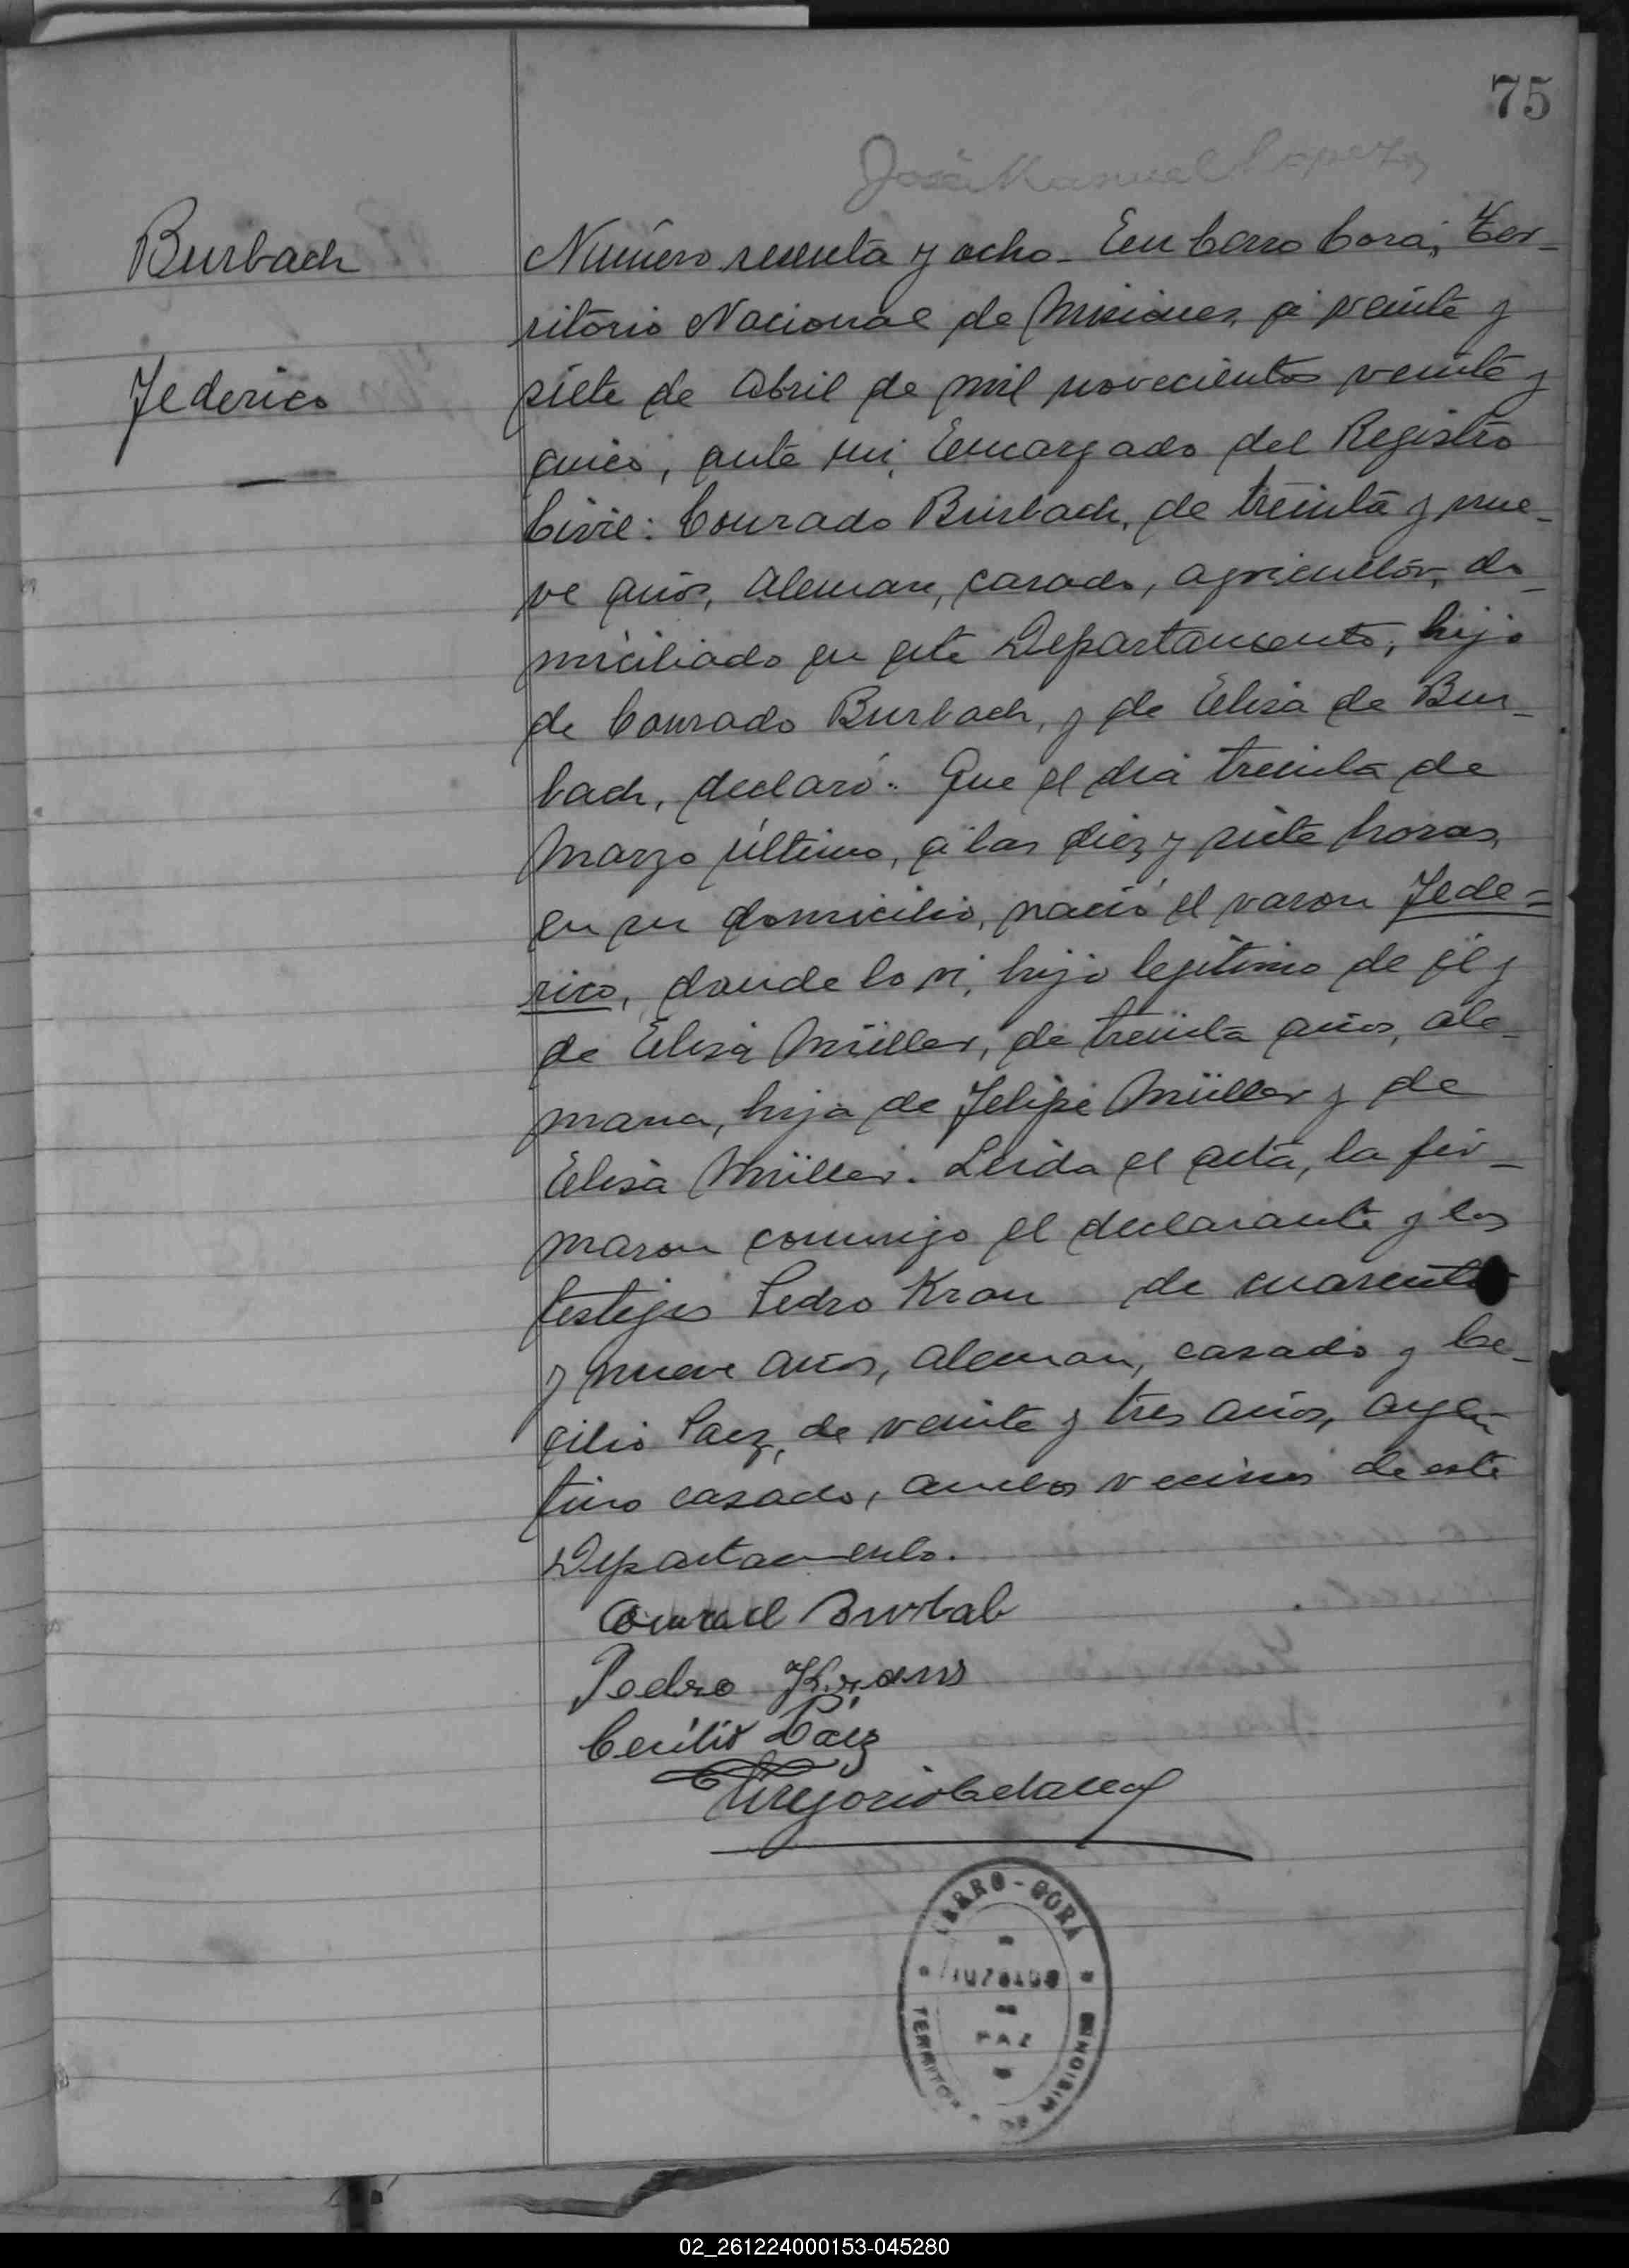 75
José Manuel Lopez
Burbach
Federico
Número sesenta y ocho - En Cerro Corá, Ter-
ritorio Nacional de Misiones, á veinte y
siete de Abril de mil novecientos veinte y
cinco, ante mi, Encargado del Registro
Civil: Conrado Burbach, de treinta y nue-
ve años, Aleman, casado, agricultor, do-
miciliado en este Departamento, hijo
de Conrado Burbach, y de Elisa de Bur-
bach, declaró: Que el dia treinta de
Marzo último, á las diez y siete horas,
en su domicilio, nació el varon Fede=
rico, donde lo vi, hijo legítimo de él y
de Elisa Müller, de treinta años, ale-
mana, hija de Felipe Müller y de
Elisa Müller. Leida el acta, la fir-
maron conmigo el declarante y los
testigos Pedro Kran de cuarenta
y nueve años, aleman, casado y Ce-
cilio Paez, de veinte y tres años, argen
tino casado, ambos vecinos de este
Departamento.
Conrad Burbab
Pedro Krans
Cecilio Páez
Gregorio
CERRO-CORÁ
JUZGADO
PAZ
TERRITO DE MISIONES
02_261224000153-045280